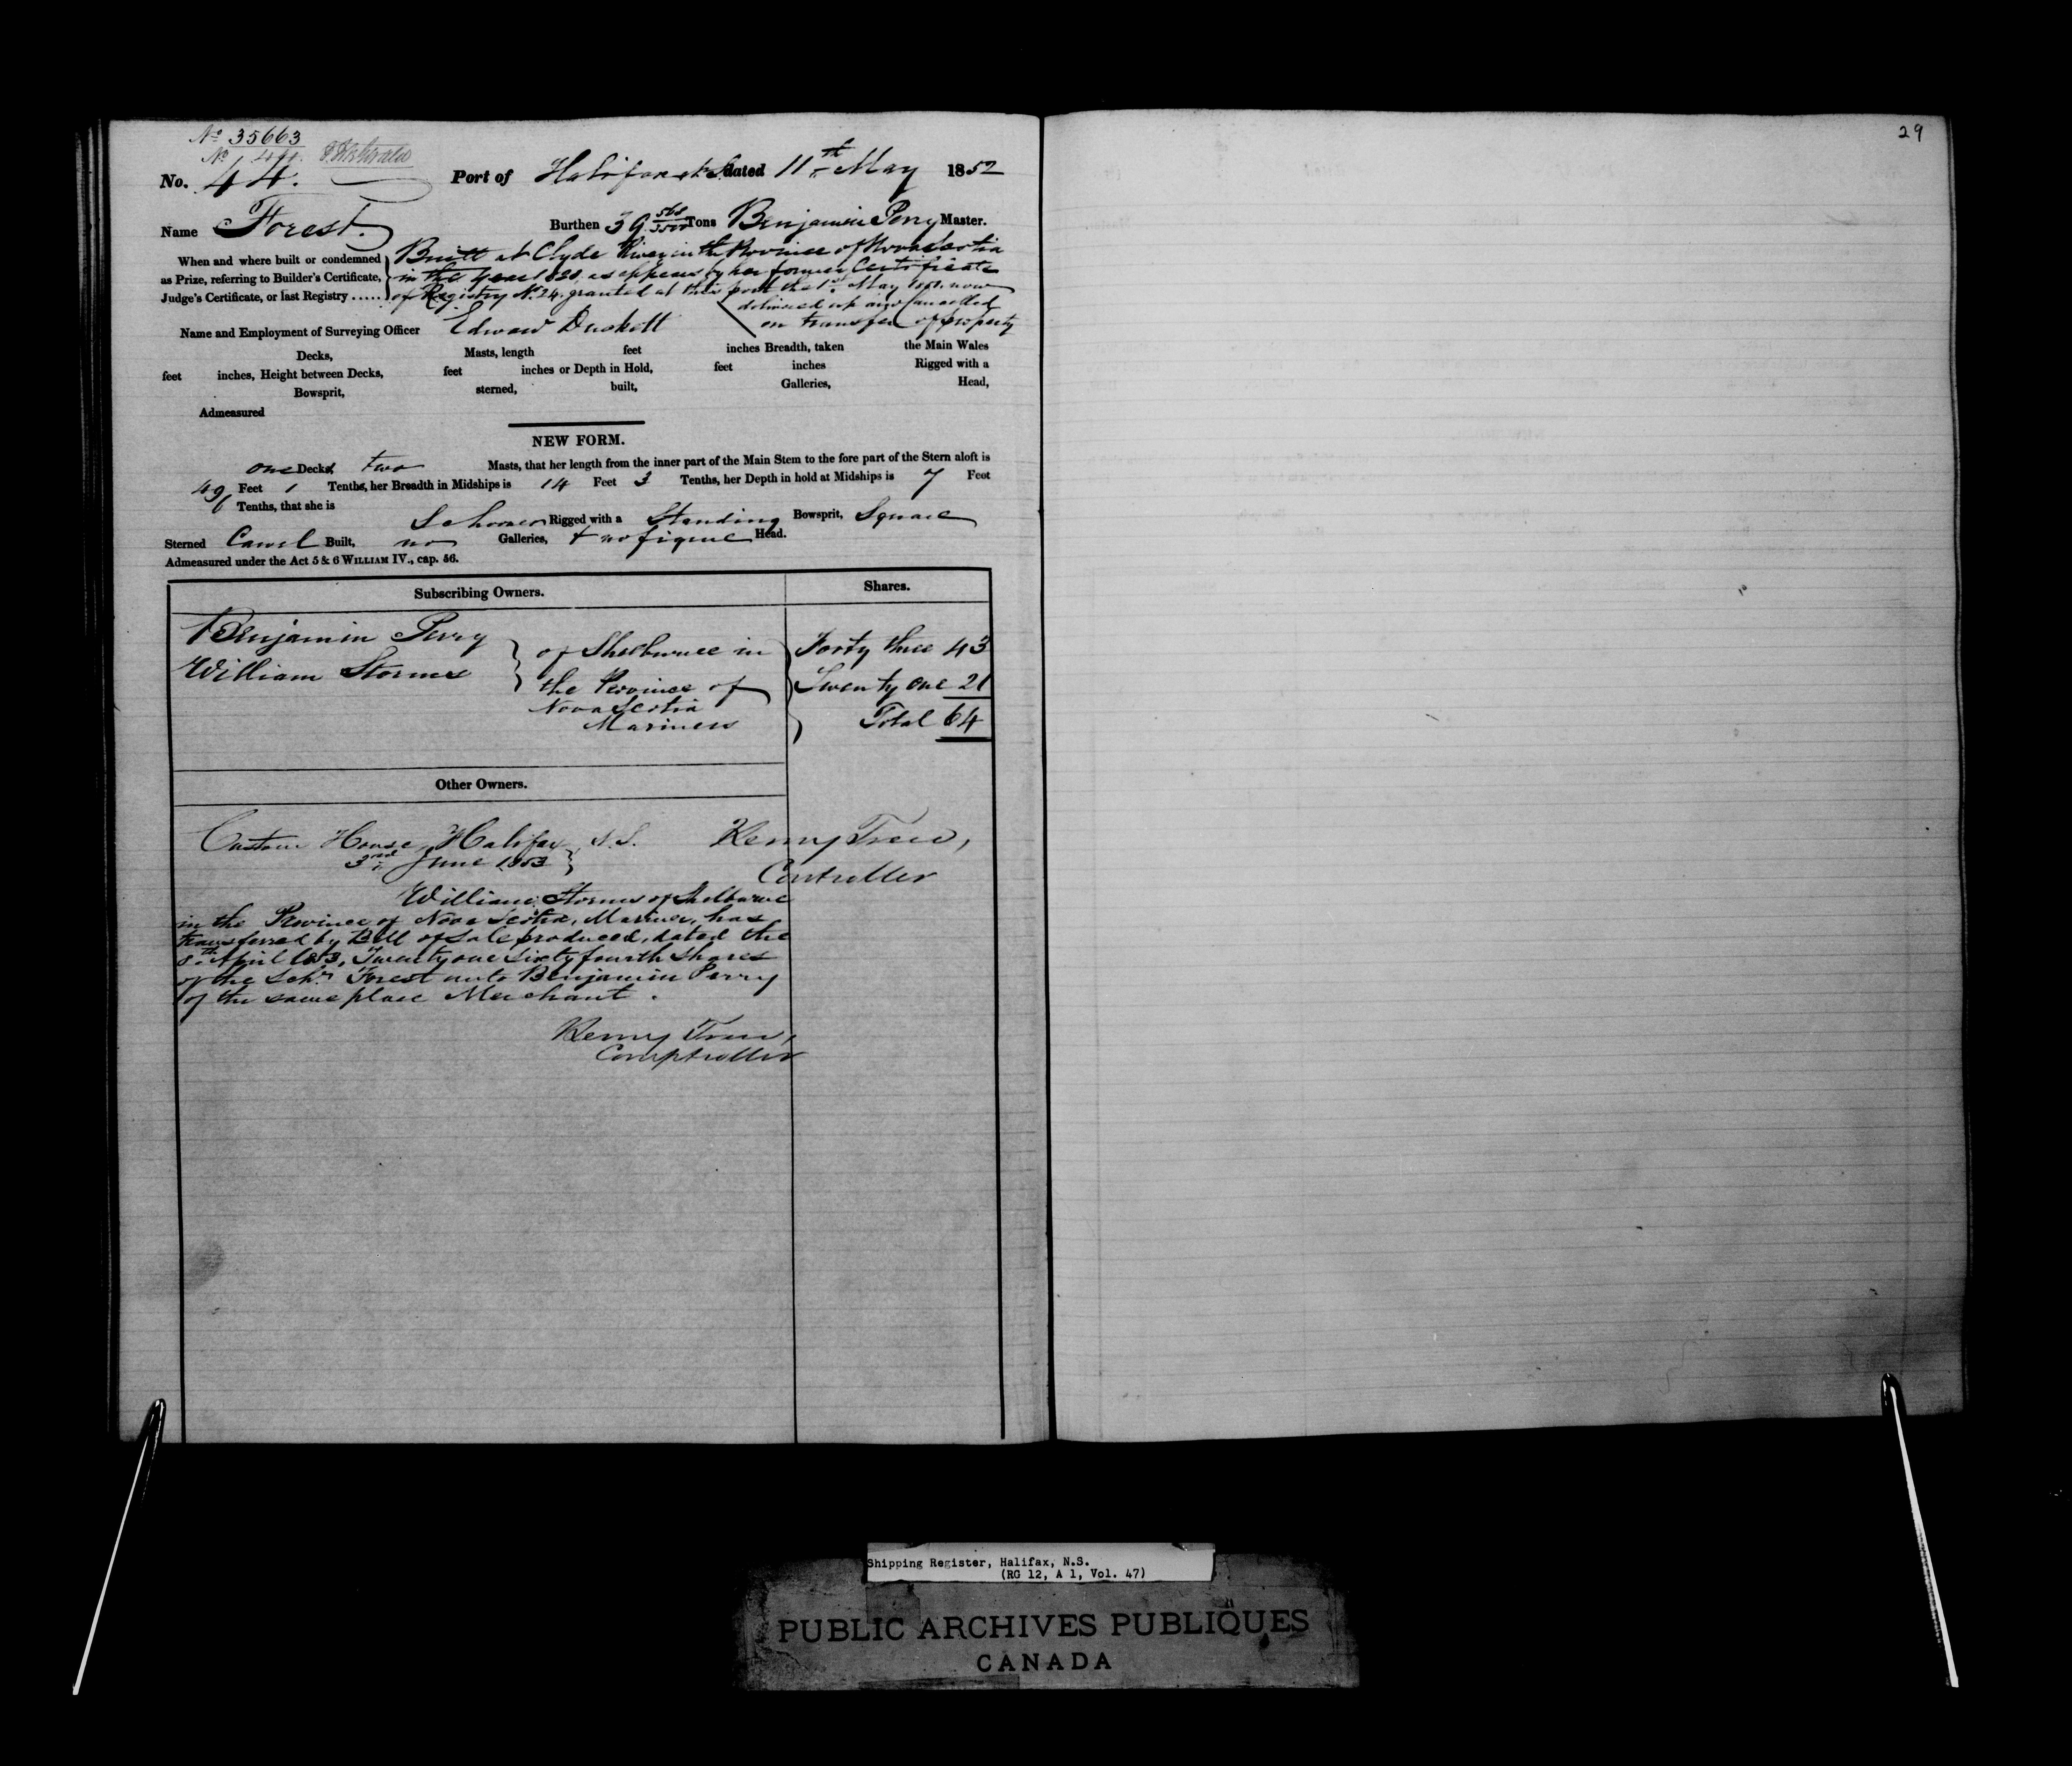 No 35663
No. 44. Port of Halifax N.S. dated 11th May 1852
Name Forest. Burthen 39 568/3500 Tons Benjamin Perry Master.
When and where built or condemned as Prize, referring to Builder's Certificate, Judge's Certificate, or last Registry ......
Built at Clyde River in the Province of Nova Scotia
in the year 1820, as appears by her former Certificate
of Registry No. 24. granted at this port the 1st May 1851 now
delivered up and cancelled
on transfer of property
Name and Employment of Surveying Officer Edward Duskett
Decks, Masts, length feet inches Breadth, taken the Main Wales
feet inches, Height between Decks, feet inches or Depth in Hold, feet inches Rigged with a
Bowsprit, sterned, built, Galleries, Head,
Admeasured
NEW FORM.
one Decks two Masts, that her length from the inner part of the Main Stem to the fore part of the Stern aloft is
49 Feet 1 Tenths, her Breadth in Midships is 14 Feet 3 Tenths, her Depth in hold at Midships is 7 Feet
6 Tenths, that she is Schooner Rigged with a Standing Bowsprit, Square
Sterned Carvel Built, no Galleries, & no figure Head.
Admeasured under the Act 5 & 6 WILLIAM IV., cap. 56.
Subscribing Owners. Shares.
Benjamin Perry of Shelburne in Forty three 43
William Storms the Province of Twenty one 21
Nova Scotia Total 64
Mariners
Other Owners.
Custom House, Halifax, N.S. Henry Trew,
3rd June 1853 Controller
William Storms of Shelburne
in the Province of Nova Scotia, Mariner, has
transferred by Bill of Sale produced, dated the
8th April 1853, Twenty one Sixty fourth Shares
of the Schr. Forest unto Benjamin Perry
of the same place Merchant.
Henry Trew,
Comptroller
29
Shipping Register, Halifax, N.S.
(RG 12, A 1, Vol. 47)
PUBLIC ARCHIVES PUBLIQUES
CANADA